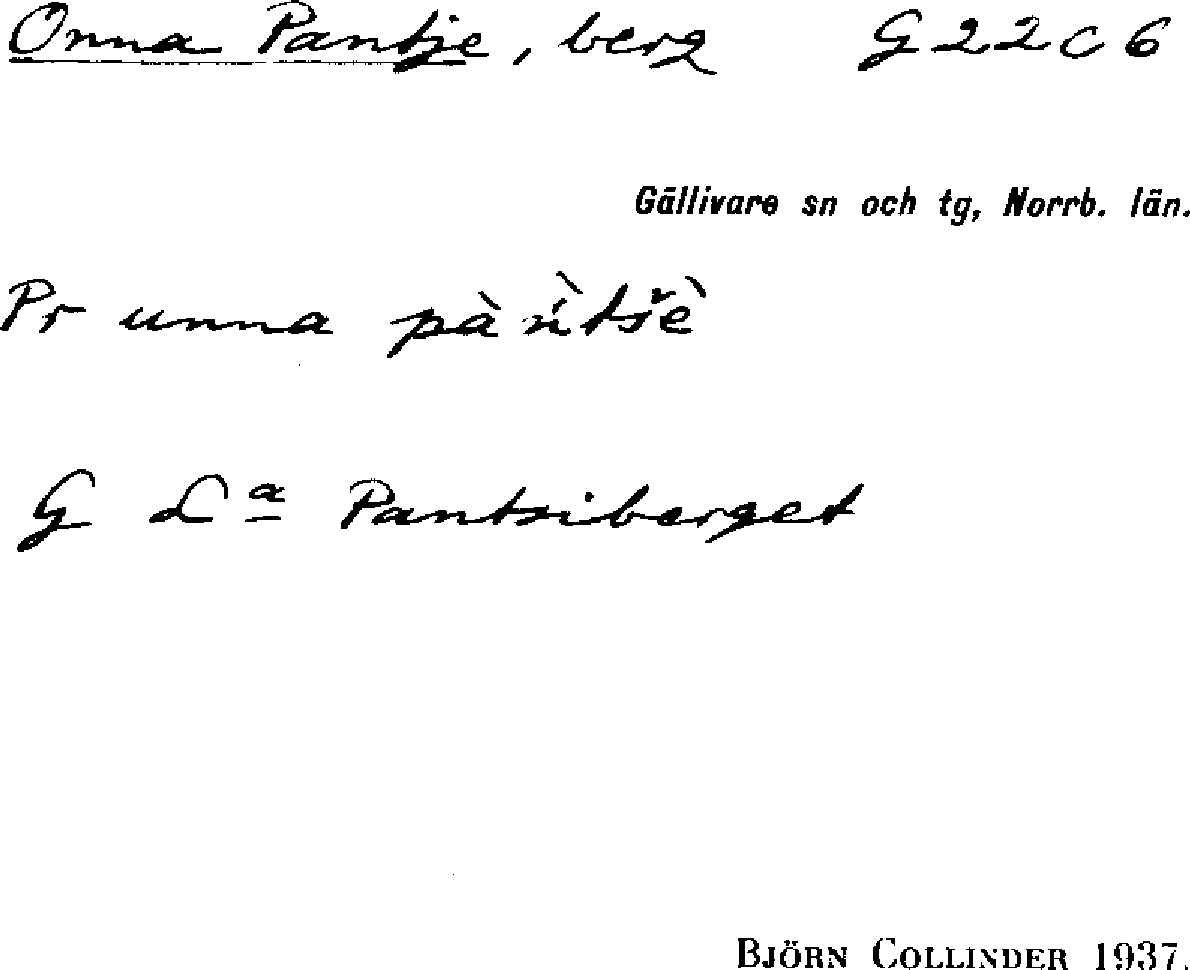 Onna Pantje, berg G22c6
Gällivare sn och tg, Norrb. län.
Pr unna pàǹ́tšè̌
G Lª Pantsiberget
BJÖRN COLLINDER 1937.